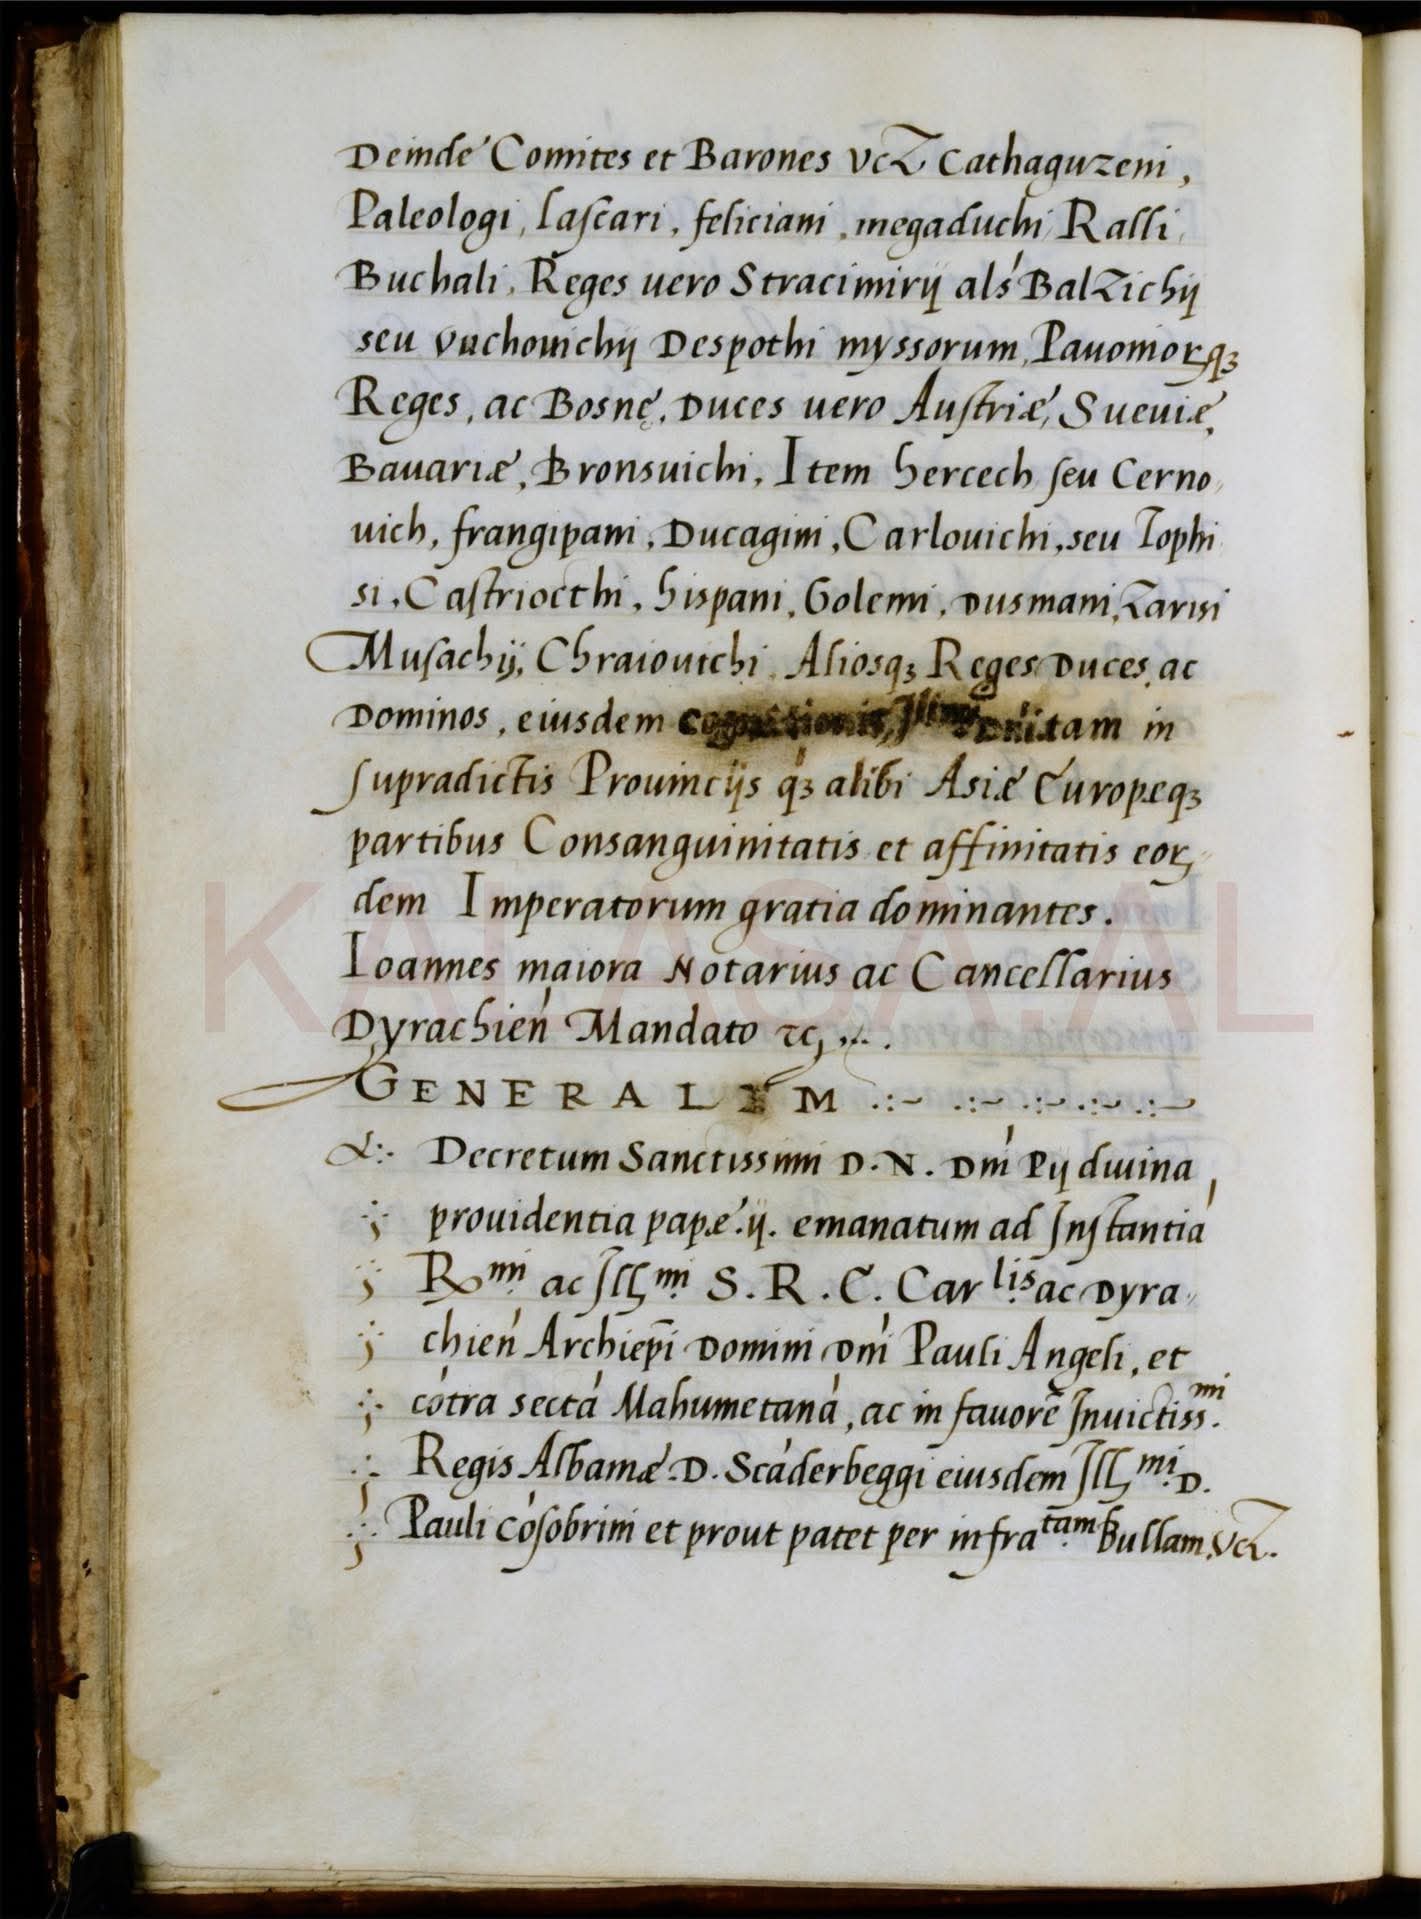 Deinde Comites et Barones vcz Cathaguzeni,
Paleologi, lascari, feliciani, megaduchi, Ralli,
Buchali, Reges uero Stracimirij als Balzichij
seu vuchouichij Despothi myssorum, Pauoniorqꝫ
Reges, ac Bosnę, Duces uero Austriæ, Sueuiæ,
Bauariæ, Bronsuichi, Item hercech seu Cerno„
uich, frangipani, Ducagini, Carlouichi, seu Tophi
si, Castriocthi, hispani, Golemi, Dusmani, Zarisi
Musachij, Chraiouichi, Aliosqꝫ Reges Duces, ac
Dominos, eiusdem tam in
supradictis Prouincijs qꝫ alibi Asiæ Europæqꝫ
partibus Consanguinitatis et affinitatis eoꝝ„
dem Imperatorum gratia dominantes.
Ioannes maiora Notarius ac Cancellarius
Dyrachień Mandato ꝛc, ...
GENERALIM .:~ .:~ .:~ .:~ .:~
Decretum Sanctissimi D. N. Dńi Pij diuina
prouidentia papæ .ij. emanatum ad Instantiá
Rmi ac Illmi S. R. E. Carlis ac Dyra„
chień Archiepi Domini Dńi Pauli Angeli, et
cótra sectá Mahumetaná, ac in fauorē Inuictissmi.
Regis Albaniæ D. Scáderbeggi eiusdem Illmi D.
Pauli cósobrini et prout patet per infratam Bullam, vcz.
KALASA.AL